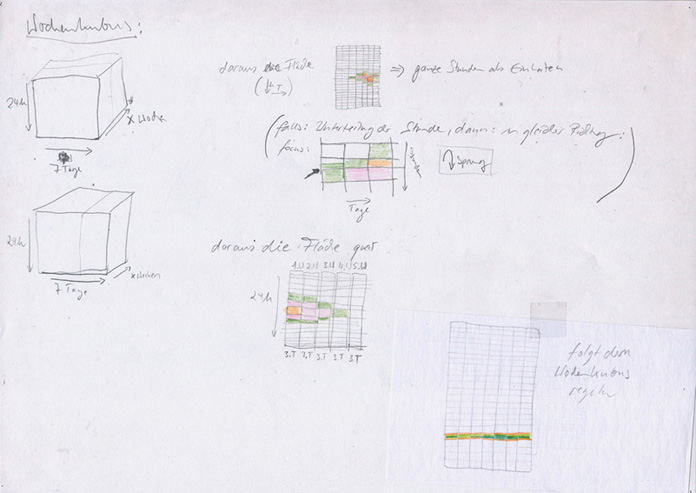 Wochenkubus:
24h
x Wochen
7 Tage
24h
x Wochen
7 Tage
daraus die Fläche
⇒ ganze Stunden als Einheiten
(falls: Unterteilung der Stunde, dann: in gleicher Richtung:
focus:
Sprung
Tage
daraus die Fläche quer
1.W 2.W 3.W 4.W 5.W
24h
3.T 3.T 3.T 3.T 3.T
folgt dem
Wochenkubus
regeln